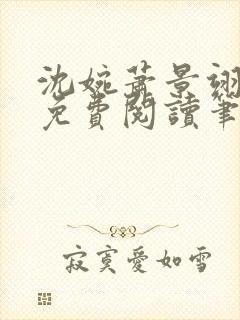 沈婉蕭景翊
免費閱讀筆
寂寞愛如雪